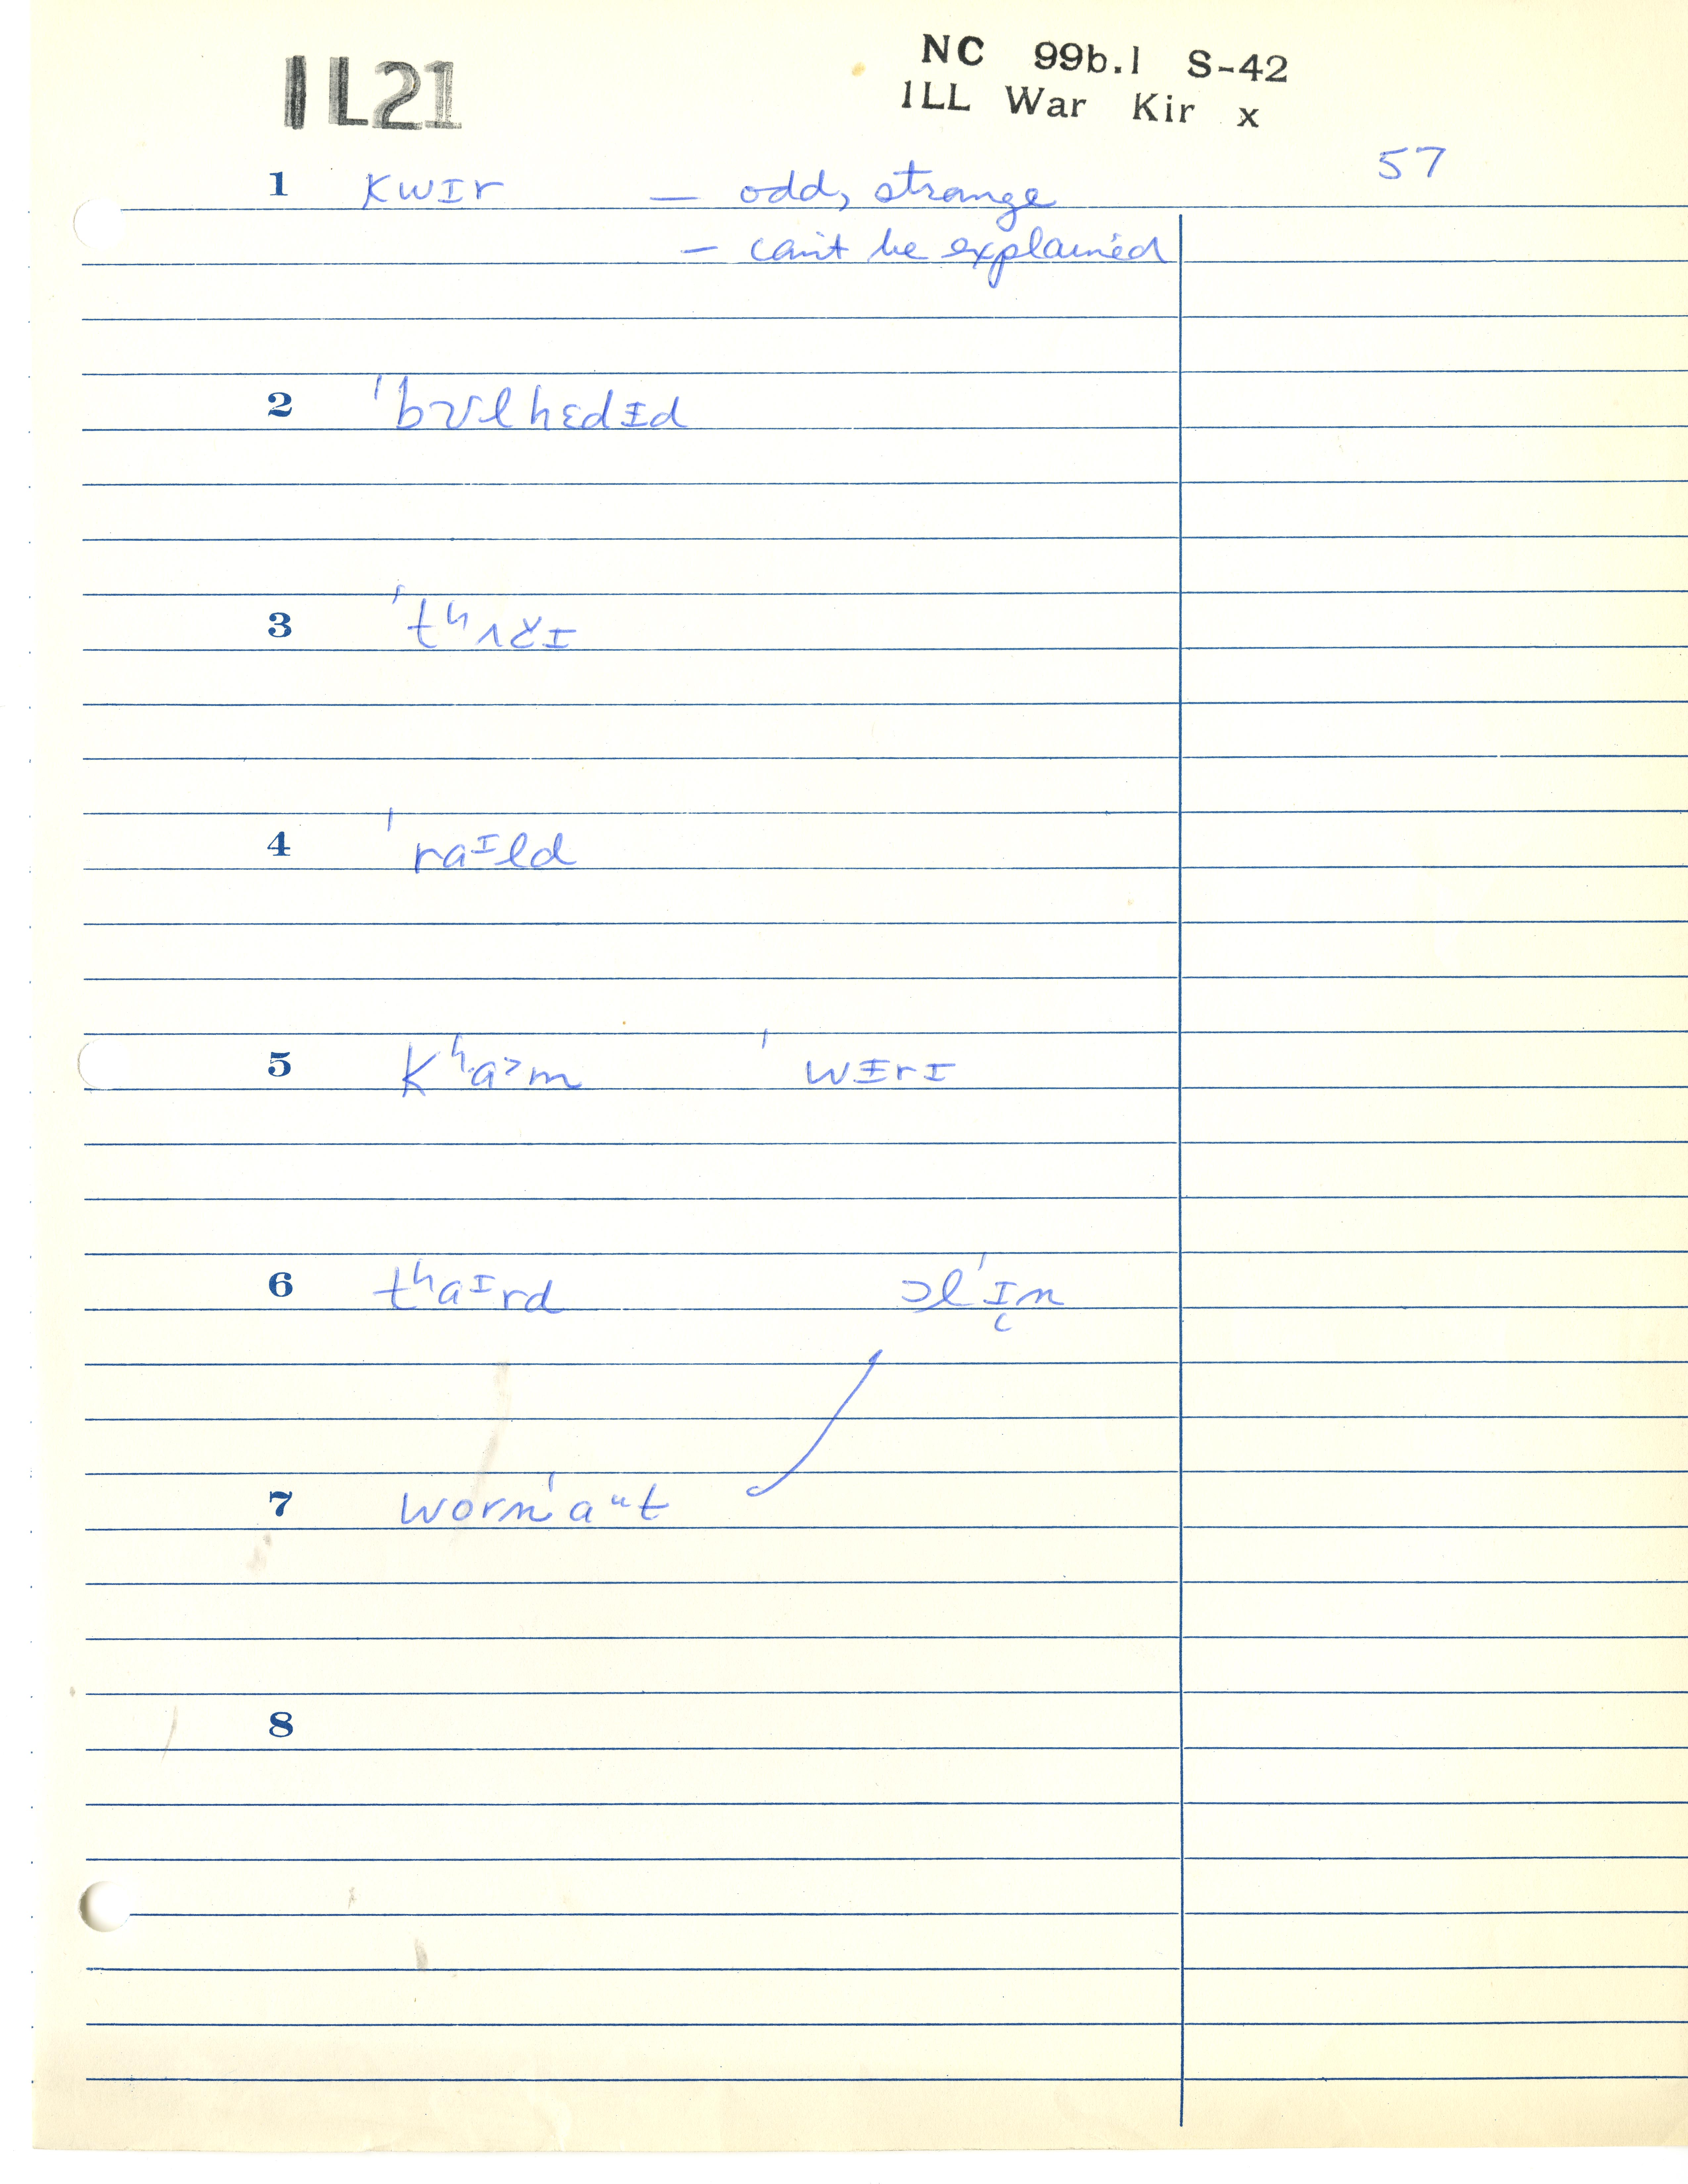 IL21
NC 99b.1 S-42
ILL War Kir x
57
1 kwɪr — odd, strange
— can't be explained
2 'bʊlhɛdɪd
3 'tʰʌčɪ
4 'raᶦld
5 kʰaᵓm 'wɪrɪ
6 tʰaᶦrd ɔl'ɪn
7 worn'aᵘt
8